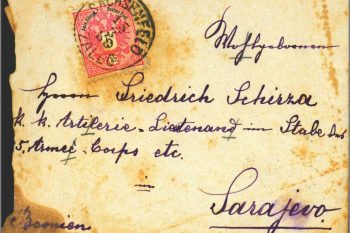 Wohlgeboren
Herrn Friedrich Schirza
k. k. Artillerie. Lieutenand im Stabe des
5. Armee Corps etc.
in
Sarajevo
Bosnien.